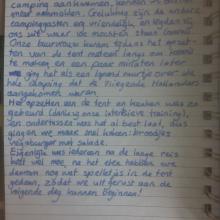 camping aankwamen, konden we
enkel aanmelden. Gelukkig zijn de andere
campinggasten erg vriendelijk, en legden ze
ons uit waar we moesten staan
Onze buurvrouw kwam tijdens het opzet-
ten van de tent meteen langs om kennis
te maken en een paar minuten later
ging het als een lopend vuurtje over de
hele camping dat de Vliegende Hollanders
aangekomen waren.
Het opzetten van de tent en keuken was zo
gebeurd (dankzij onze intensieve training),
en ondertussen was het al best laat, dus
gingen we maar snel koken: broodjes
vegaburger met salade.
Eigenlijk was iedereen na de lange reis
heel wel moe, na het eten hebben we
daarom nog wat spelletjes in de tent
gedaan, zodat we uitgerust aan de
volgende dag kunnen beginnen!